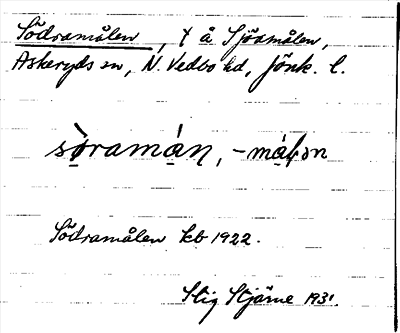 Södramålen, t å Sjöamålen,
Askeryds sn, N. Vedbo hd, Jönk. l.
sòramán, -málən
Södramålen kb 1922.
Stig Stjärne 1931.